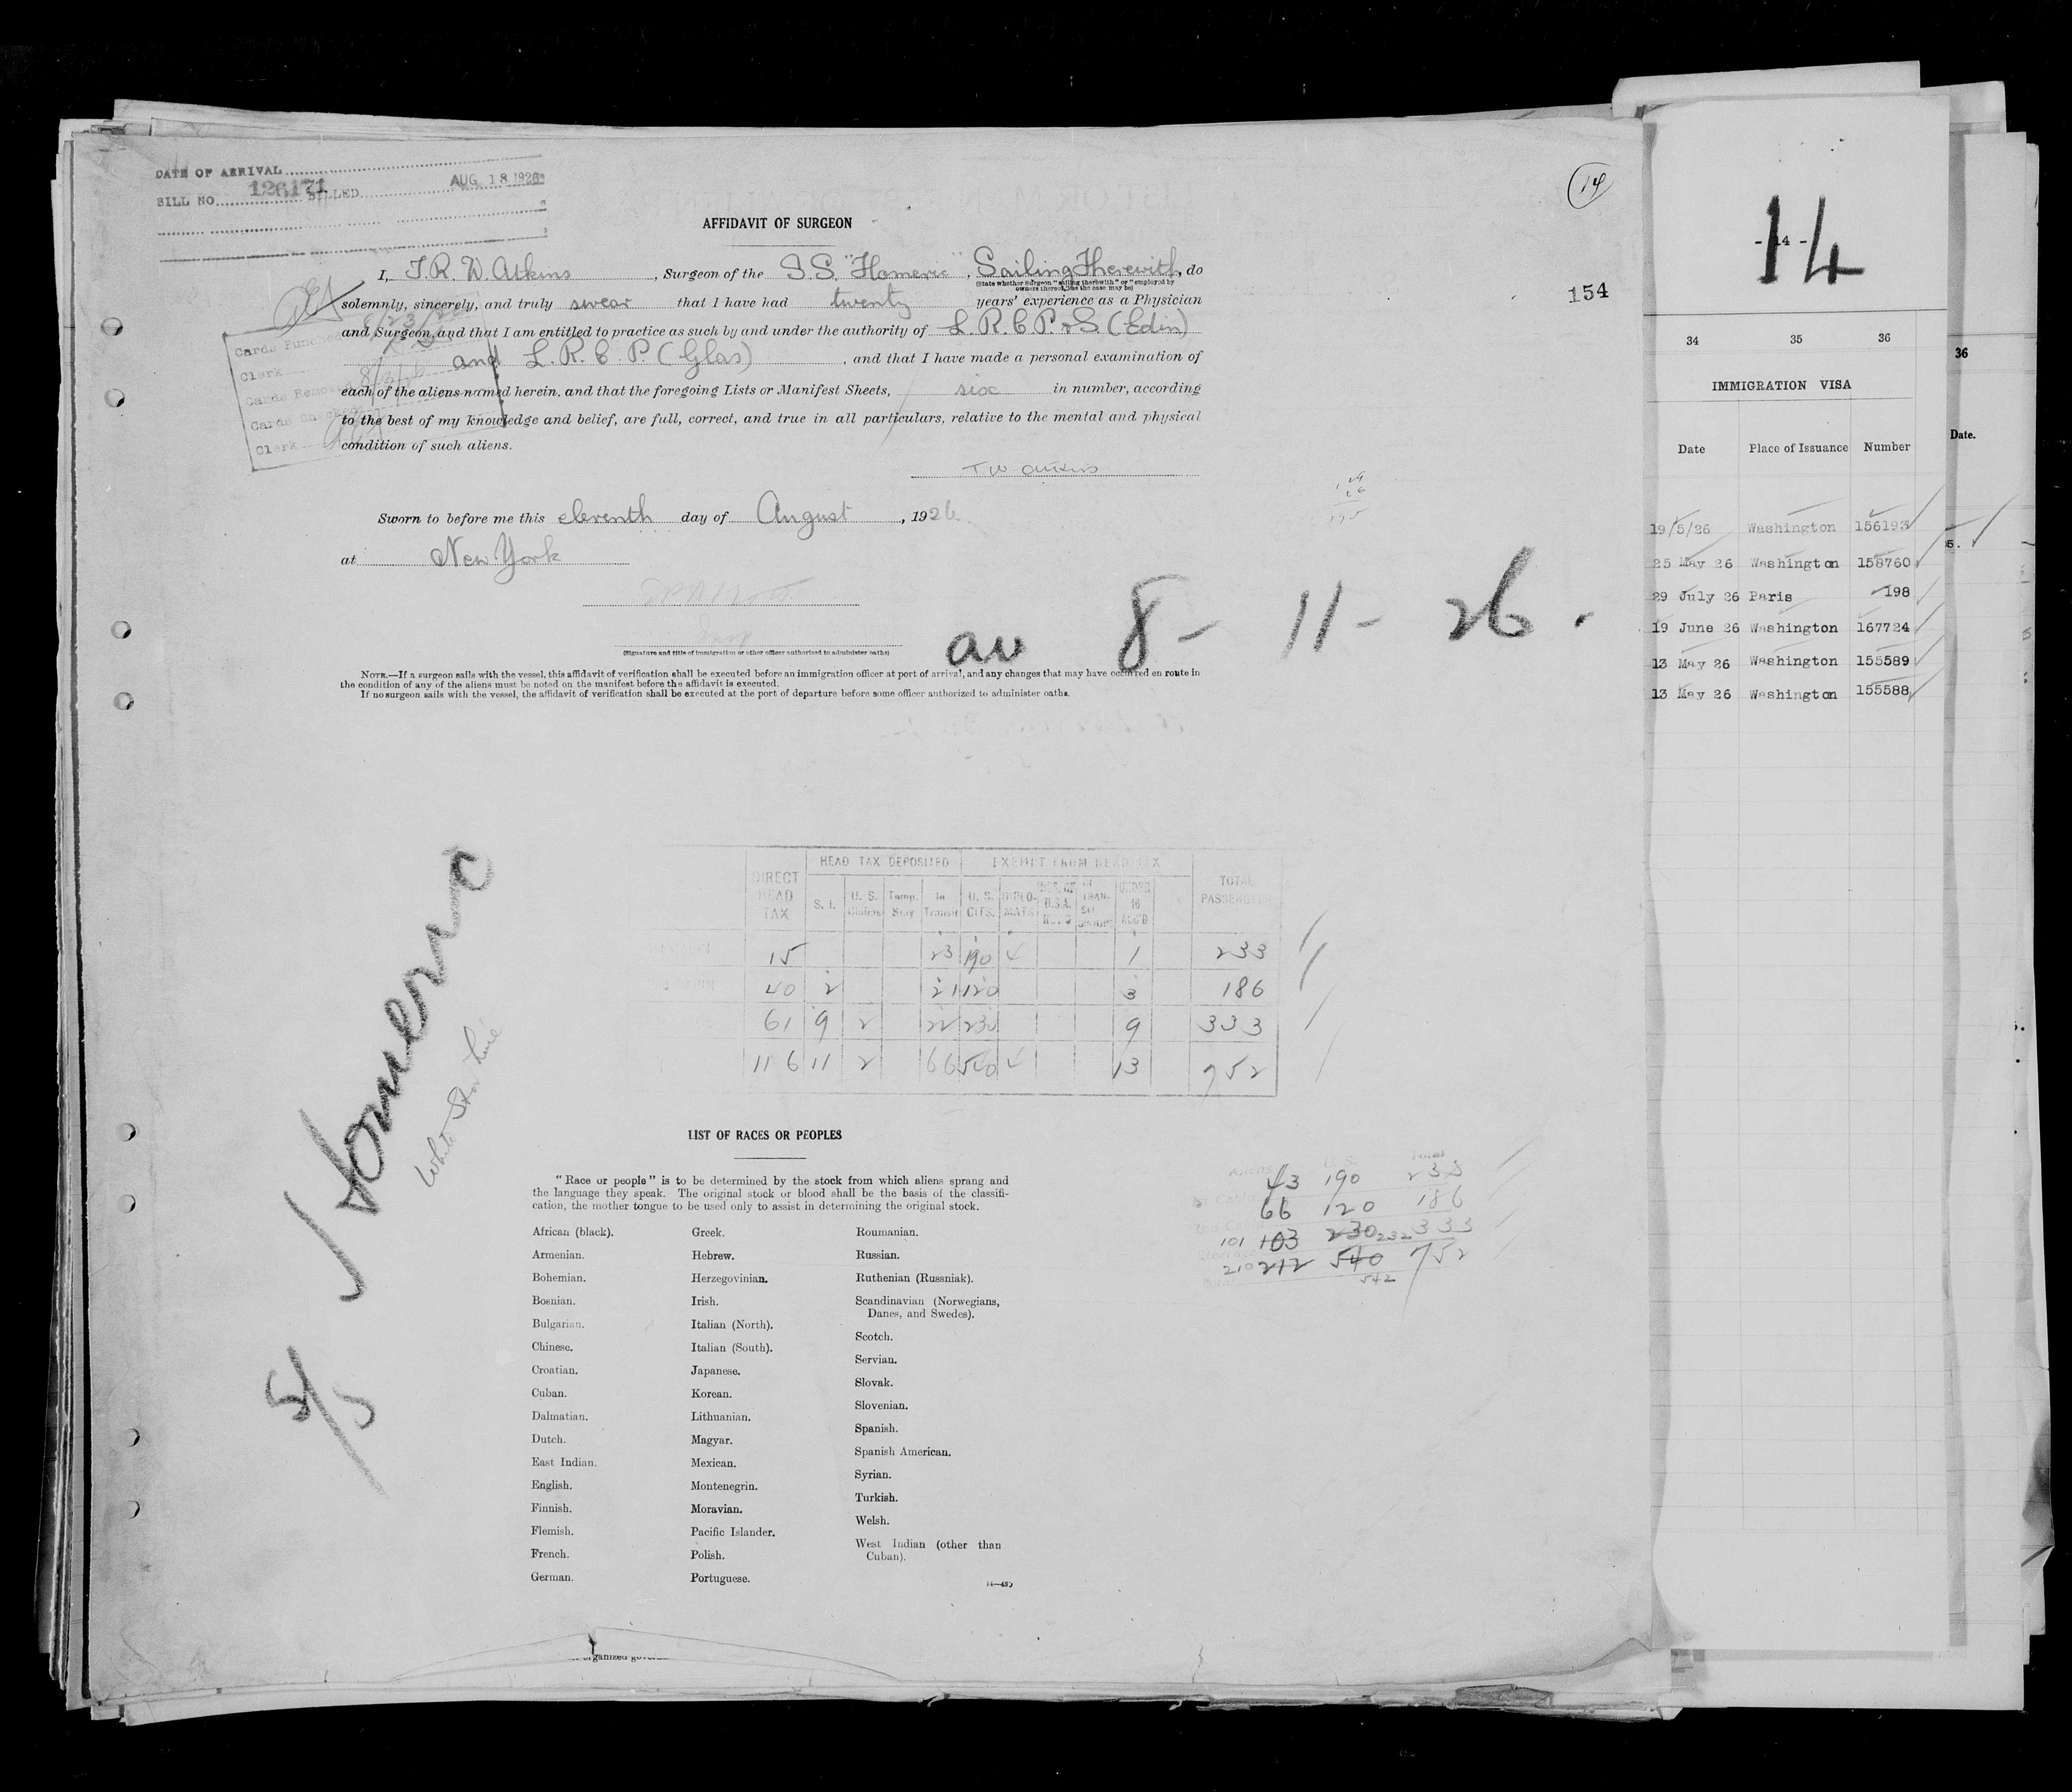 DATE OF ARRIVAL
BILL NO. 126171 BILLED AUG 18 1926
14
AFFIDAVIT OF SURGEON
I, T. R. W. Atkins, Surgeon of the S.S. "Homeric", Sailing Therewith, do
(State whether Surgeon "sailing therewith" or "employed by
owners thereof," as the case may be)
solemnly, sincerely, and truly swear that I have had twenty years' experience as a Physician
and Surgeon, and that I am entitled to practice as such by and under the authority of L.R.C.P. & S (Edin)
and L.R.C.P. (Glas), and that I have made a personal examination of
each of the aliens named herein, and that the foregoing Lists or Manifest Sheets, six in number, according
to the best of my knowledge and belief, are full, correct, and true in all particulars, relative to the mental and physical
condition of such aliens.
Cards Punched 8/23/26
Clerk
Cards Removed
Cards Checked
Clerk
T W Atkins
Sworn to before me this eleventh day of August, 1926.
at New York
Insp
(Signature and title of immigration or other officer authorized to administer oaths)
au 8-11-26.
NOTE.—If a surgeon sails with the vessel, this affidavit of verification shall be executed before an immigration officer at port of arrival, and any changes that may have occurred en route in
the condition of any of the aliens must be noted on the manifest before the affidavit is executed.
If no surgeon sails with the vessel, the affidavit of verification shall be executed at the port of departure before some officer authorized to administer oaths.
154
Homeric
White Star Line
5/5
DIRECT HEAD TAX HEAD TAX DEPOSITED EXEMPT FROM HEAD TAX TOTAL PASSENGERS
S. I. U. S. Claims Temp. Stay In Transit U. S. CITS. DIPLOMATS UNDER 16 ACC'D
15 23 190 4 1 233
40 2 21 120 3 186
61 9 2 22 230 9 333
116 11 2 66 540 4 13 752
LIST OF RACES OR PEOPLES
"Race or people" is to be determined by the stock from which aliens sprang and
the language they speak. The original stock or blood shall be the basis of the classifi-
cation, the mother tongue to be used only to assist in determining the original stock.
African (black).
Armenian.
Bohemian.
Bosnian.
Bulgarian.
Chinese.
Croatian.
Cuban.
Dalmatian.
Dutch.
East Indian.
English.
Finnish.
Flemish.
French.
German.
Greek.
Hebrew.
Herzegovinian.
Irish.
Italian (North).
Italian (South).
Japanese.
Korean.
Lithuanian.
Magyar.
Mexican.
Montenegrin.
Moravian.
Pacific Islander.
Polish.
Portuguese.
Roumanian.
Russian.
Ruthenian (Russniak).
Scandinavian (Norwegians,
Danes, and Swedes).
Scotch.
Servian.
Slovak.
Slovenian.
Spanish.
Spanish American.
Syrian.
Turkish.
Welsh.
West Indian (other than
Cuban).
Aliens U.S. Total
43 190 233
66 120 186
101 103 230 232 333
210 212 540 752
542
14
- 14 -
34 35 36
IMMIGRATION VISA
Date Place of Issuance Number
19/5/26 Washington 156193
25 May 26 Washington 158760
29 July 26 Paris 198
19 June 26 Washington 167724
13 May 26 Washington 155589
13 May 26 Washington 155588
36
Date.